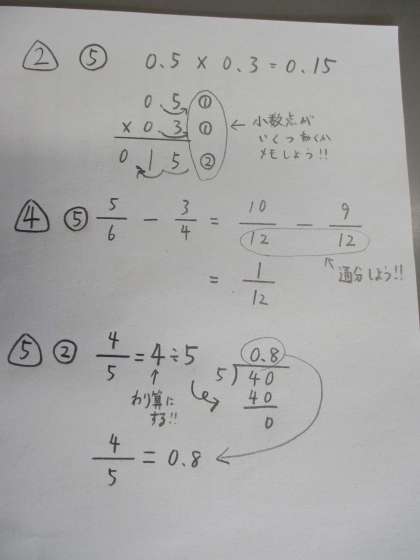 2 ⑤ 0.5 × 0.3 = 0.15
0 5 ①
× 0 3 ①
0 1 5 ②
← 小数点が
いくつ動くか
メモしよう!!
4 ⑤ 5/6 − 3/4 = 10/12 − 9/12
= 1/12
通分しよう!!
5 ② 4/5 = 4÷5
わり算に
する!!
0.8
5)40
40
0
4/5 = 0.8